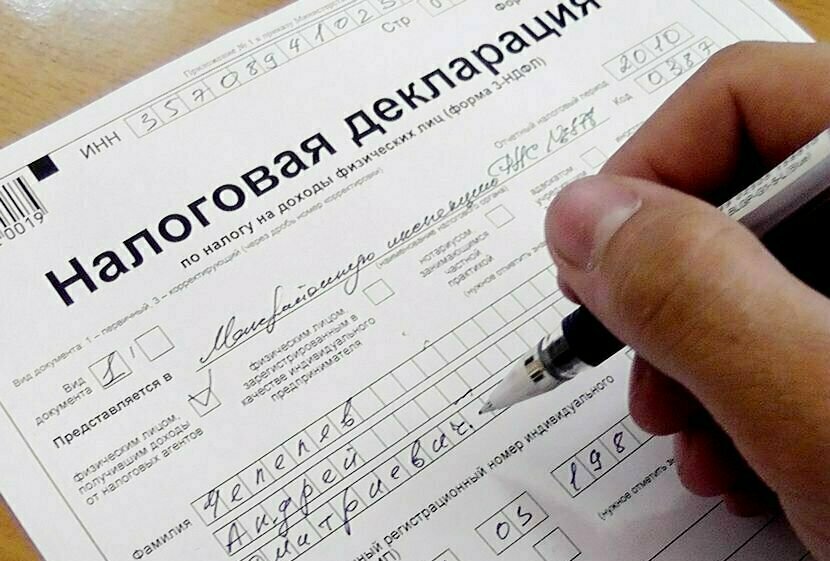 Приложение № 1 к приказу
Стр
ИНН 3570894102
Налоговая декларация
по налогу на доходы физических лиц (форма 3-НДФЛ)
0019
Отчетный налоговый период 2010
Код 0387
Вид документа: 1 – первичный, 3 – корректирующий (через дробь номер корректировки)
Вид
документа 1 /
Представляется в Межрайонную инспекцию
(наименование налогового органа)
физическим лицом,
получившим доходы
от налоговых агентов
физическим лицом,
зарегистрированным в
качестве индивидуального
предпринимателя
нотариусом
занимающимся
частной
практикой
адвокатом
(нужное отметить
Фамилия Чепелев
Андрей
митриевич
регистрационный номер индивидуального
03 198
(нужное отметить